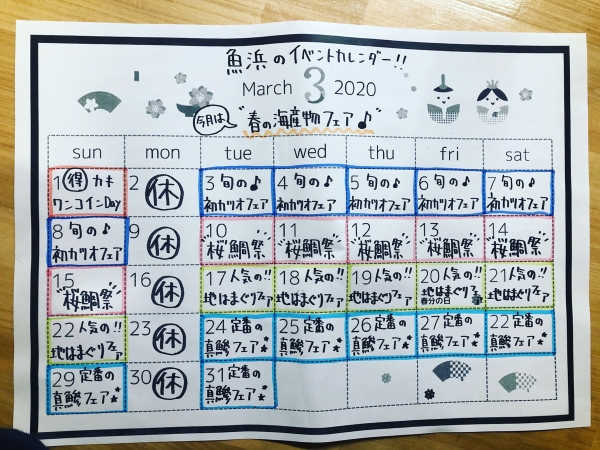 魚浜のイベントカレンダー!!
March 3 2020
今月は
"春の海産物フェア♪"
sun mon tue wed thu fri sat
1 得 カキ
ワンコインDay
2 休
3 旬の♪
初カツオフェア
4 旬の♪
初カツオフェア
5 旬の♪
初カツオフェア
6 旬の♪
初カツオフェア
7 旬の♪
初カツオフェア
8 旬の♪
初カツオフェア
9 休
10
桜鯛祭
11
桜鯛祭
12
桜鯛祭
13
桜鯛祭
14
桜鯛祭
15
桜鯛祭
16 休
17 人気の!!
地はまぐりフェア
18 人気の!!
地はまぐりフェア
19 人気の!!
地はまぐりフェア
20 人気の!!
地はまぐりフェア
春分の日
21 人気の!!
地はまぐりフェア
22 人気の!!
地はまぐりフェア
23 休
24 定番の
真鰺フェア★
25 定番の
真鰺フェア★
26 定番の
真鰺フェア★
27 定番の
真鰺フェア★
22 定番の
真鰺フェア★
29 定番の
真鰺フェア★
30 休
31 定番の
真鰺フェア★